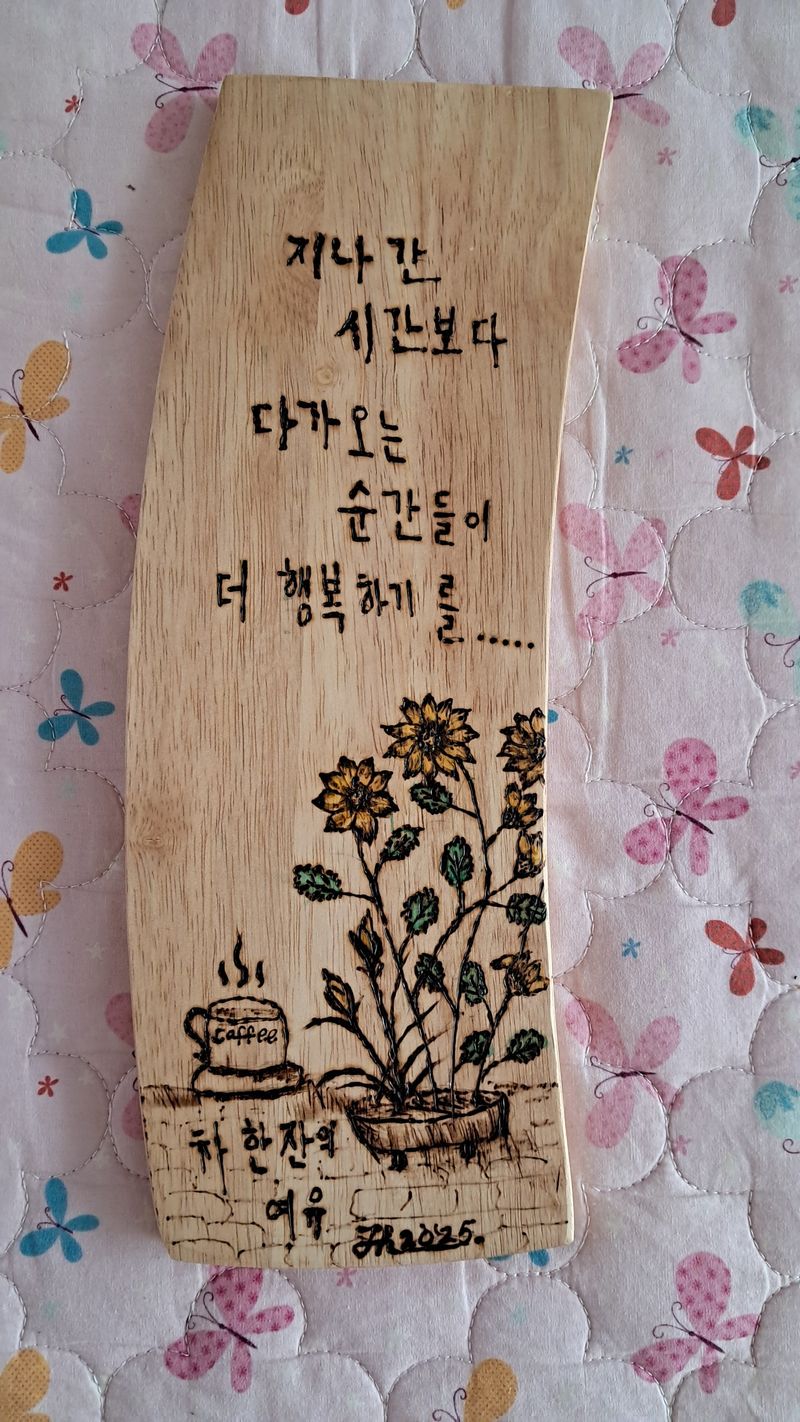 지나간
시간보다
다가오는
순간들이
더 행복하기를.....
caffee
차 한잔의
여유
Jh2025.